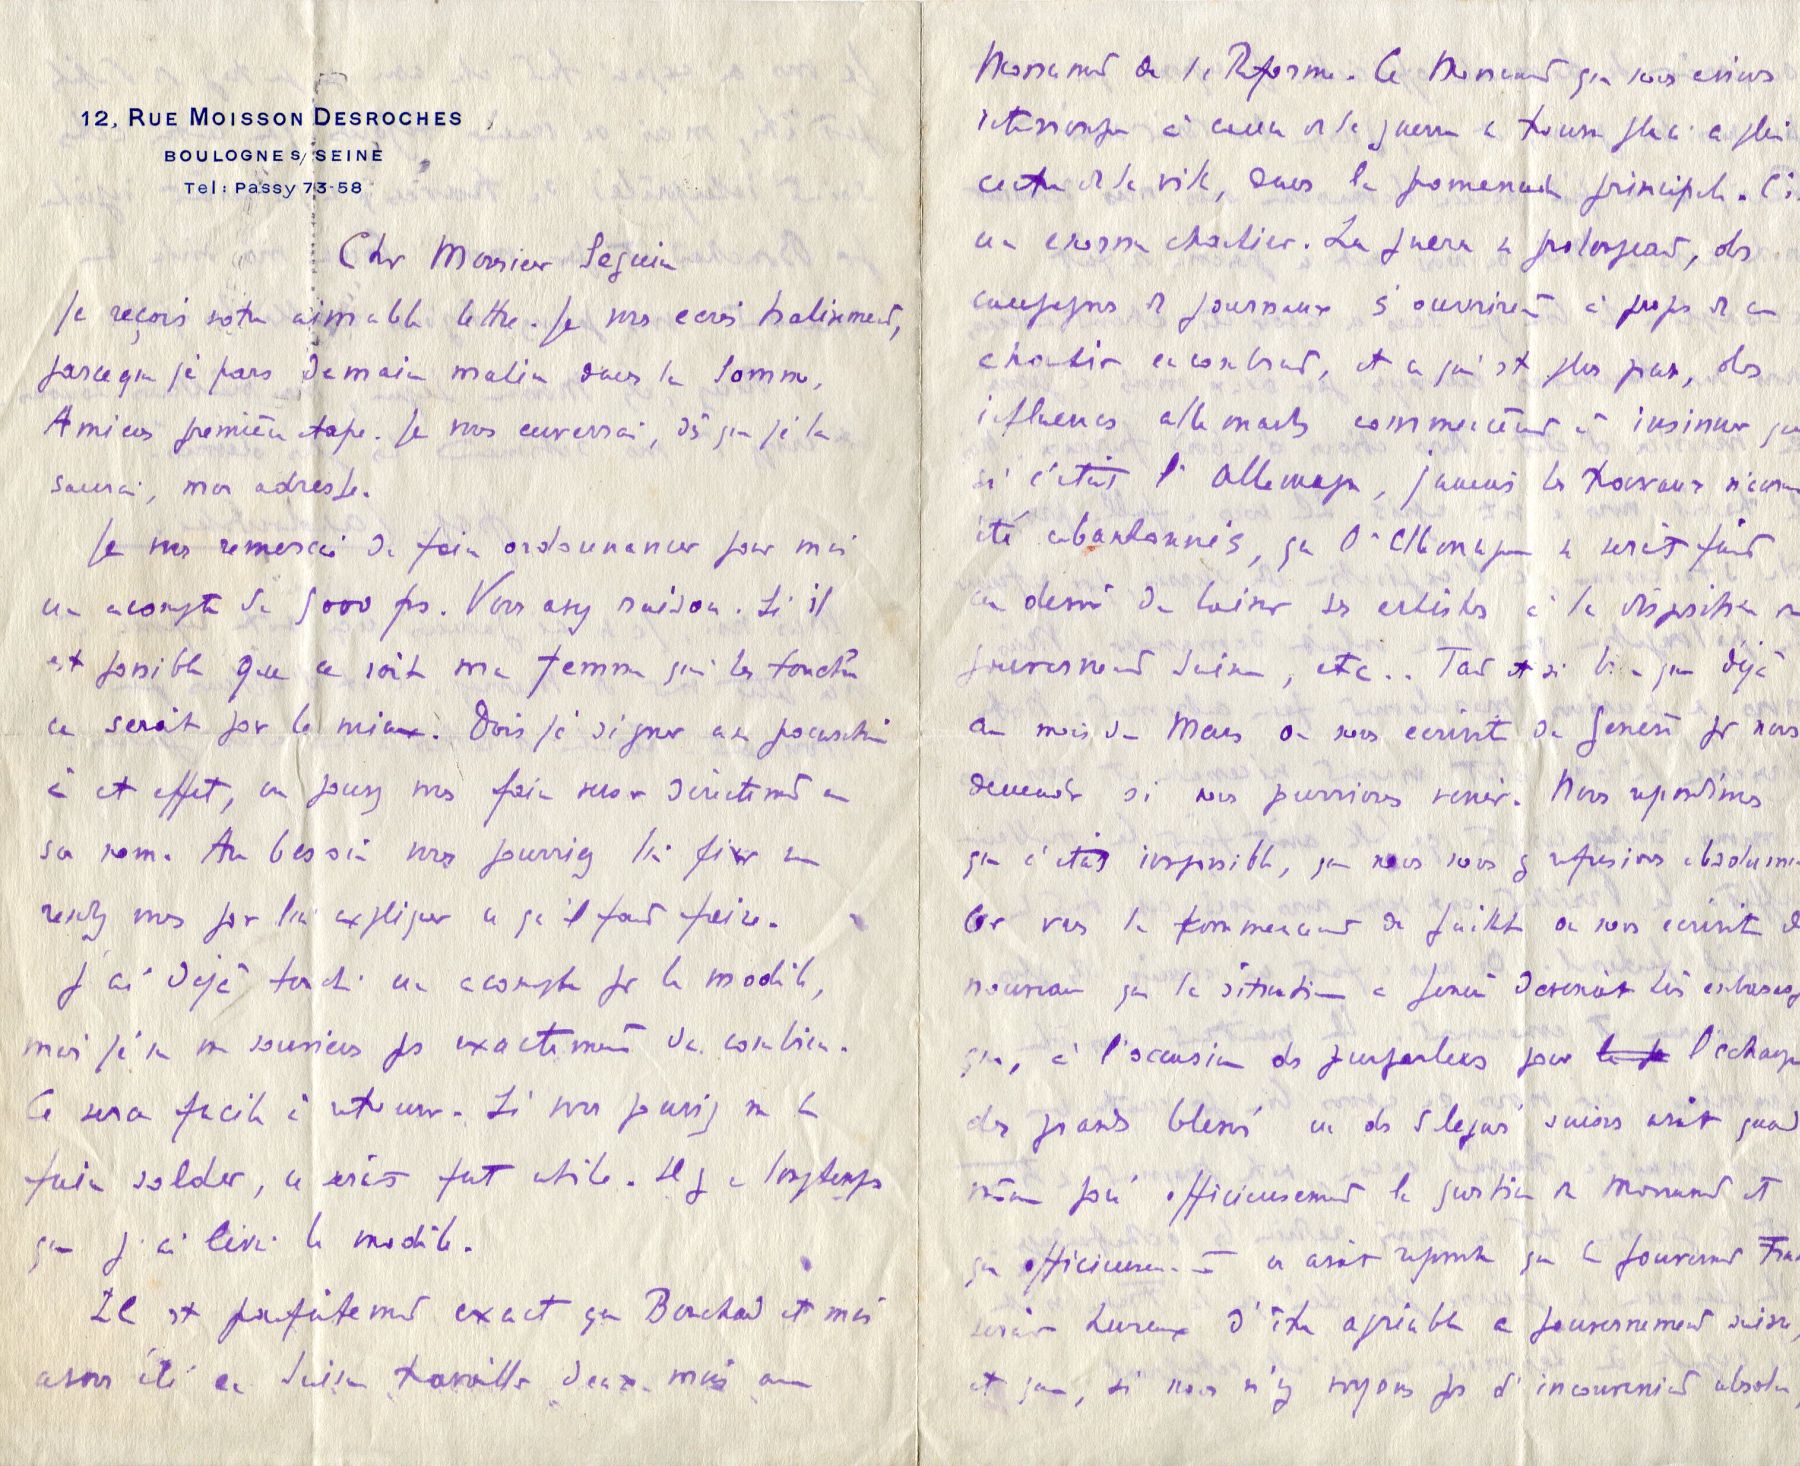 12, RUE MOISSON DESROCHES
BOULOGNE S/ SEINE
Tel : Passy 73-58
Cher Monsieur Seguin
Je reçois votre aimable lettre. Je vous écris hativement,
parceque je pars demain matin dans la Somme,
Amiens première étape. Je vous enverrai, dès que je la
saurai, mon adresse.
Je vous remercie de faire ordonnancer pour moi
un acompte de 5000 frs. Vous avez raison. Si il
est possible que ce soit ma femme qui les touche
ce serait pour le mieux. Dois je signer une procuration
à cet effet, ou pouvez vous faire verser directement en
son nom. Au besoin vous pourriez lui fixer un
rendez vous pour lui expliquer ce qu'il faut faire.
J'ai déjà touché un acompte pr le modèle,
mais je ne me souviens pas exactement de combien.
Ce sera facile à retrouver. Si vous pouviez me le
faire solder, ce serait fort utile. Il y a longtemps
que j'ai livré le modèle.
Il est parfaitement exact que Bouchard et moi
avons été en Suisse travailler deux mois au
Monument de la Réforme. Ce Monument que nous avions
interrompu à cause de la guerre se trouve placé en plein
centre de la ville, dans la promenade principale. C'est
un énorme chantier. La guerre se prolongeant, des
campagnes de journaux s'ouvrirent à propos de ce
chantier encombrant, et ce qui est plus grave, des
influences allemandes commencèrent à insinuer que
si c'était l'Allemagne, jamais les travaux n'auraient
été abandonnés, que l'Allemagne se serait fait
un devoir de laisser ses artistes à la disposition du
gouvernement suisse, etc.. Tant et si bien que déjà
au mois de Mars on nous écrivit de Genève pr nous
demander si nous pourrions venir. Nous répondîmes
que c'était impossible, que nous nous y refusions absolument
Or vers le commencement de juillet on nous écrivit de
nouveau que la situation à Genève devenait très embarrassante
que, à l'occasion des pourparlers pour l'échange
des grands blessés un des délégués suisses avait quand
même posé officieusement la question du Monument et
que officieusement on avait répondu que le gouvernement Français
serait heureux d'être agréable au gouvernement suisse,
et que, si nous n'y voyons pas d'inconvénient absolu,